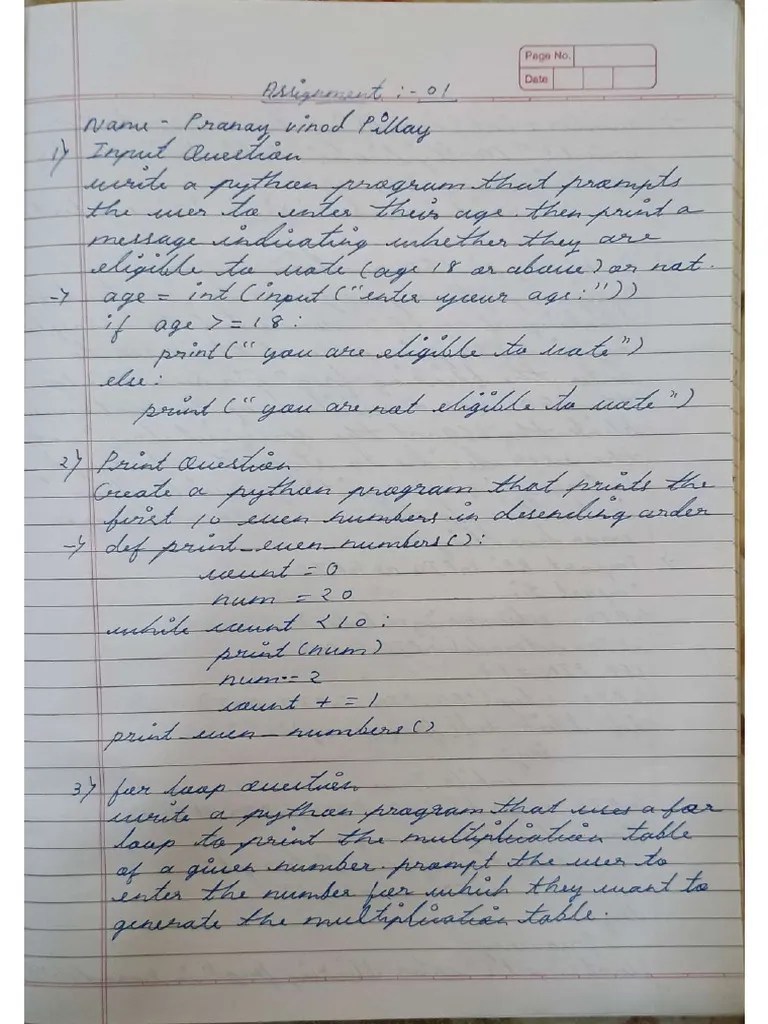 Page No.
Date
Assignment :- 01
Name - Pranay vinod Pillay
1) Input Question
write a python program that prompts
the user to enter their age. then print a
message indicating whether they are
eligible to vote (age 18 or above) or not.
-> age = int(input("enter your age:"))
if age >= 18:
print("you are eligible to vote")
else:
print("you are not eligible to vote")
2) Print Question
Create a python program that prints the
first 10 even numbers in desending order
-> def print_even_numbers():
count = 0
num = 20
while count < 10:
print(num)
num -= 2
count += 1
print_even_numbers()
3) for loop question
write a python program that uses a for
loop to print the multiplication table
of a given number. prompt the user to
enter the number for which they want to
generate the multiplication table.